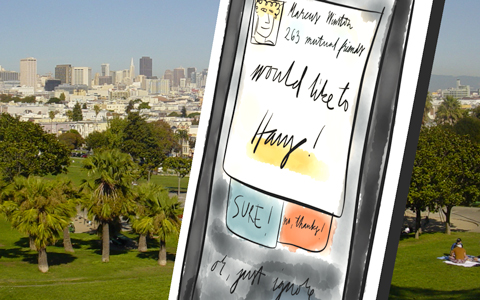 Marcus Minton
263 mutual friends
would like to
Hang!
SURE!
no, thanks!
or, just ignore